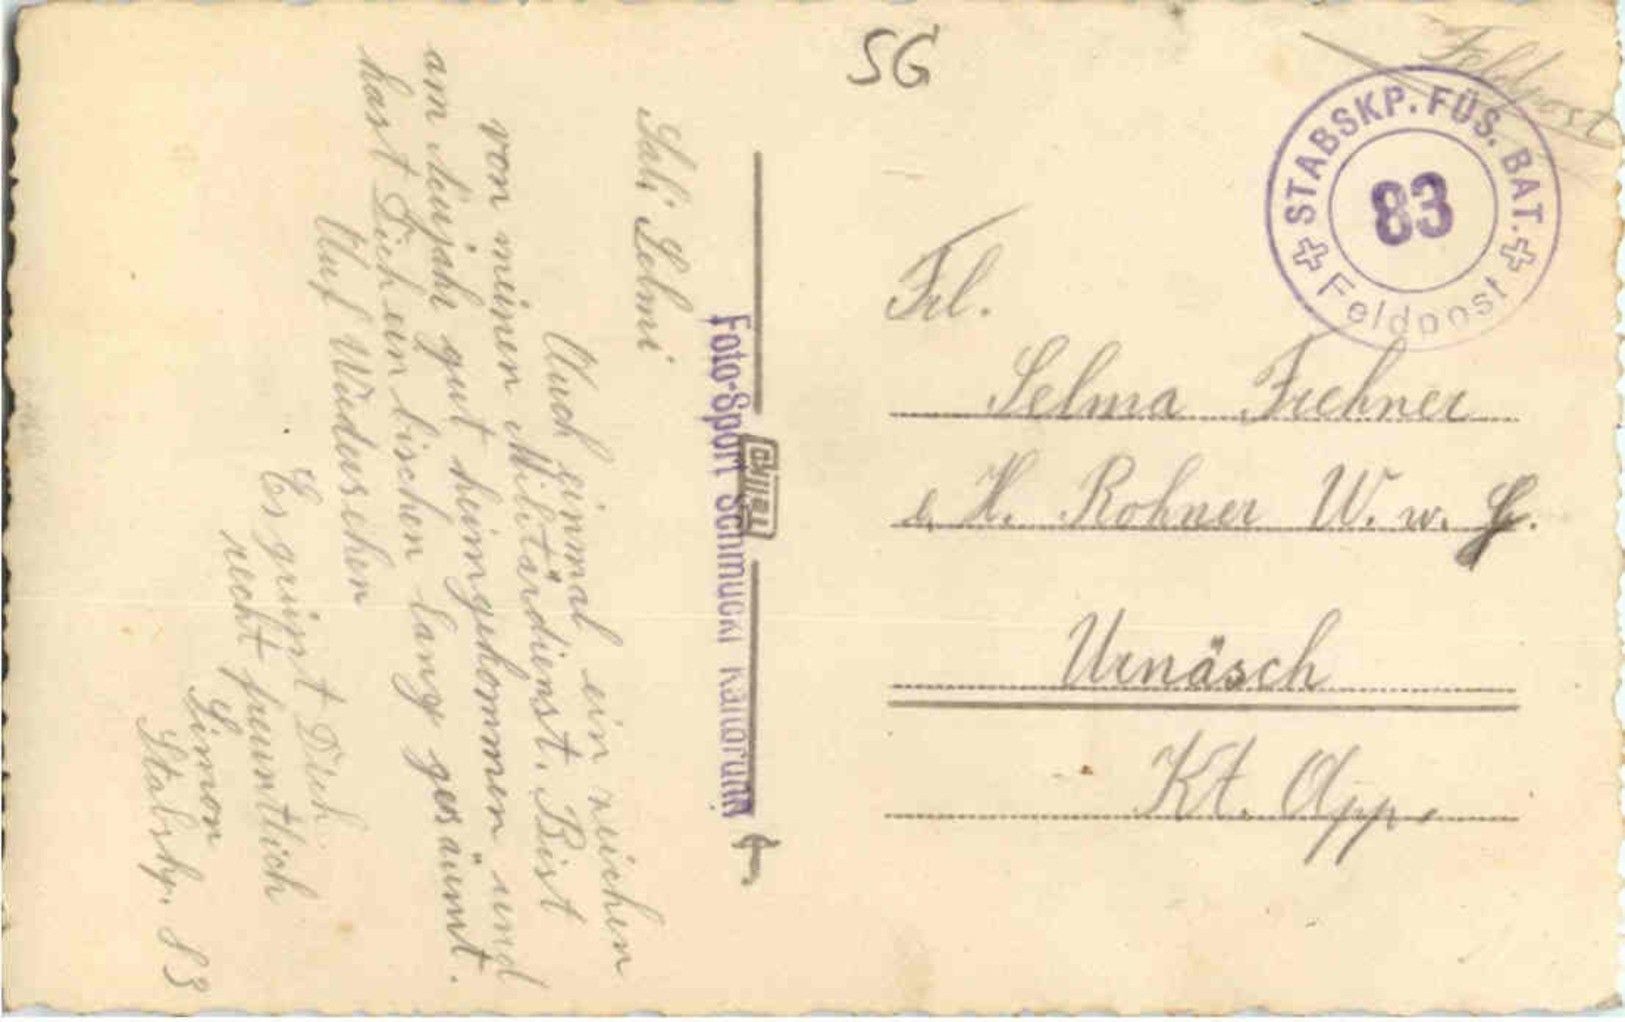 SG
Feldpost
STABSKP. FÜS. BAT.
83
Feldpost
Frl.
Selma Frehner
b. H. Rohner W. w.
Urnäsch
Kt. App.
Foto-Sport Schmucki Kaltbrunn
Sali Selmi
Auch einmal ein
von meinen Militärdienst. Bist
am Neujahr gut heimgekommen und
hast Dich ein bischen lang gesäumt.
Auf Wiedersehen
Es grüsst Dich
recht freuntlich
Simon
Stabskp. 83